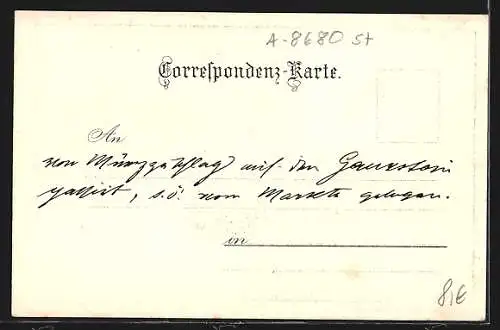 A-8680 St
Correspondenz-Karte.
An
von Mürzzuschlag auf den Ganzstein
passirt, s.ö. vom Markte gelegen.
in
8,E